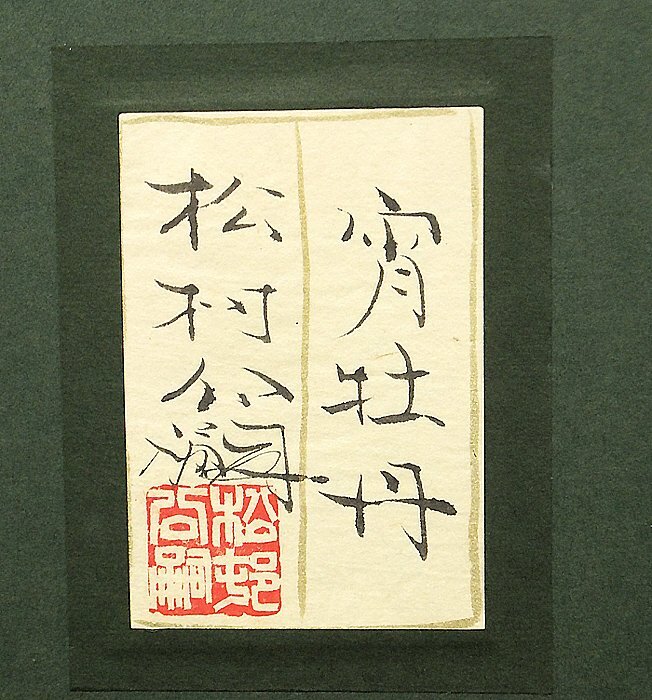 宵牡丹
松村公嗣
松邨
公嗣